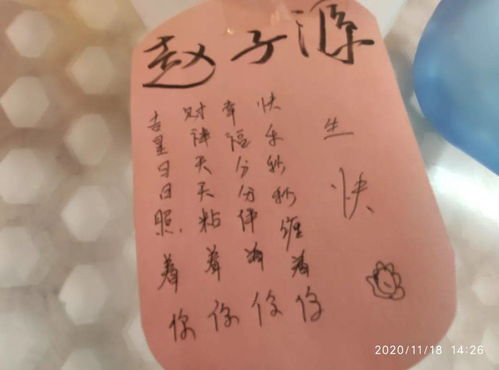 赵子源
生快
快乐秒秒缠着你
幸福分分伴着你
财神天天粘着你
吉星日日照着你
2020/11/18 14:26